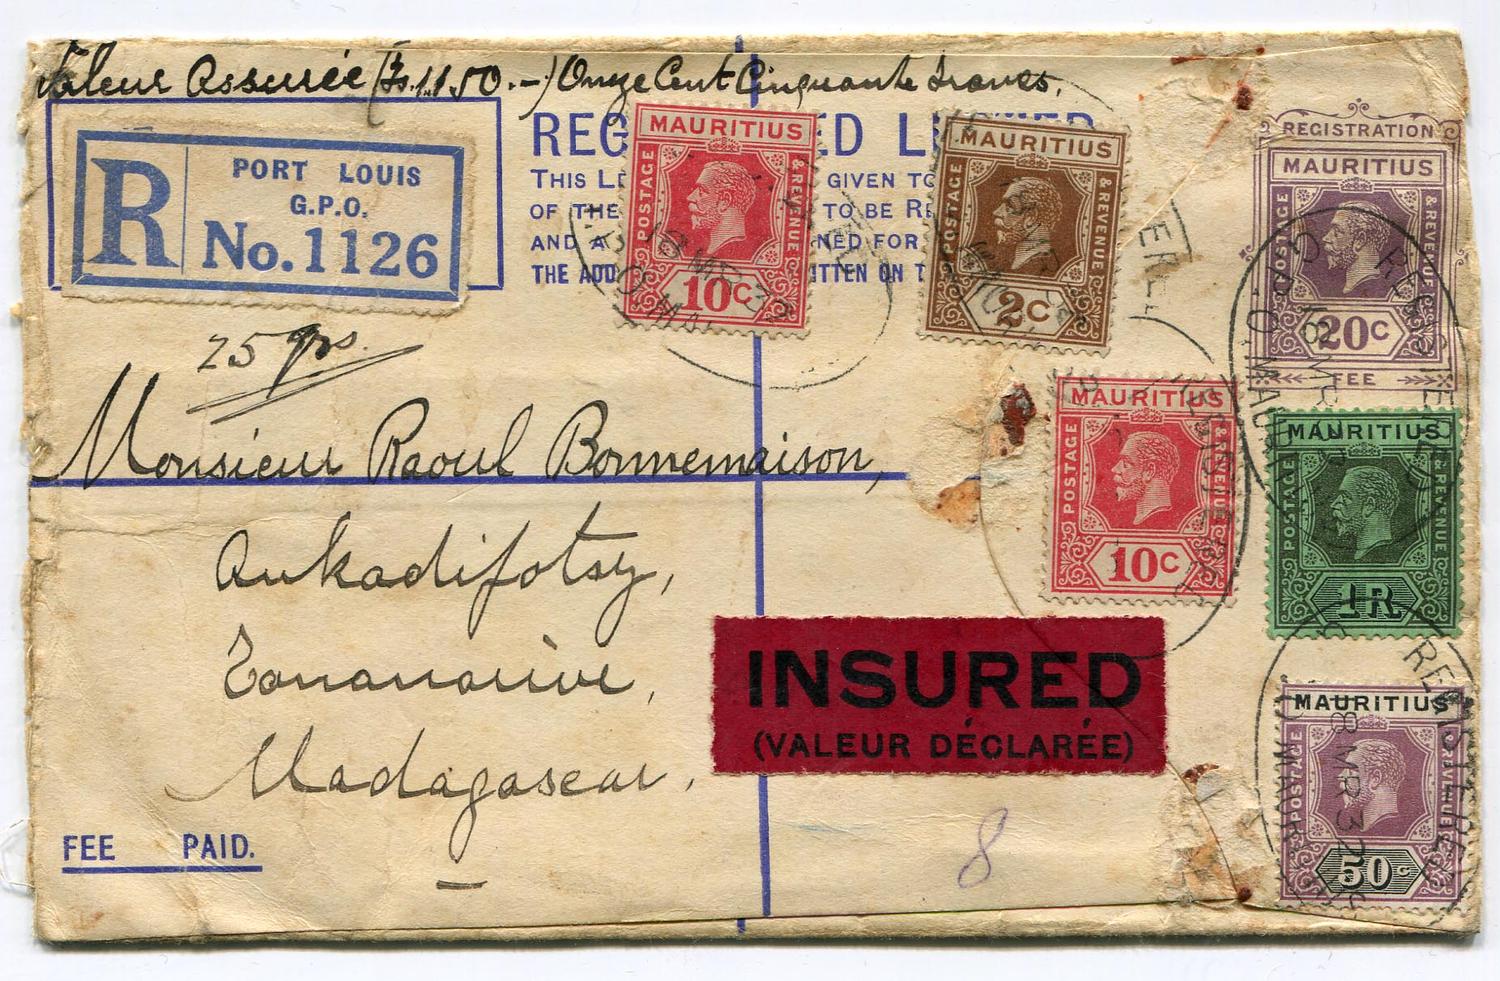 Valeur Assurée (Frs.1150.-) Onze Cent Cinquante francs.
R
PORT LOUIS
G.P.O.
No. 1126
THIS
GIVEN TO
OF THE
TO BE
AND A
FOR
THE
ON
MAURITIUS
POSTAGE
& REVENUE
10c
MAURITIUS
POSTAGE
& REVENUE
2c
REGISTRATION
MAURITIUS
POSTAGE
& REVENUE
20c
FEE
25 grs.
Monsieur Raoul Bonnemaison,
Ankadifotsy,
Tananarive,
Madagascar.
MAURITIUS
POSTAGE
& REVENUE
10c
MAURITIUS
POSTAGE
& REVENUE
1R.
INSURED
(VALEUR DÉCLARÉE)
MAURITIUS
POSTAGE
& REVENUE
50c
REGISTERED
18 MR 32
G.P.O. MAURITIUS
8
FEE PAID.